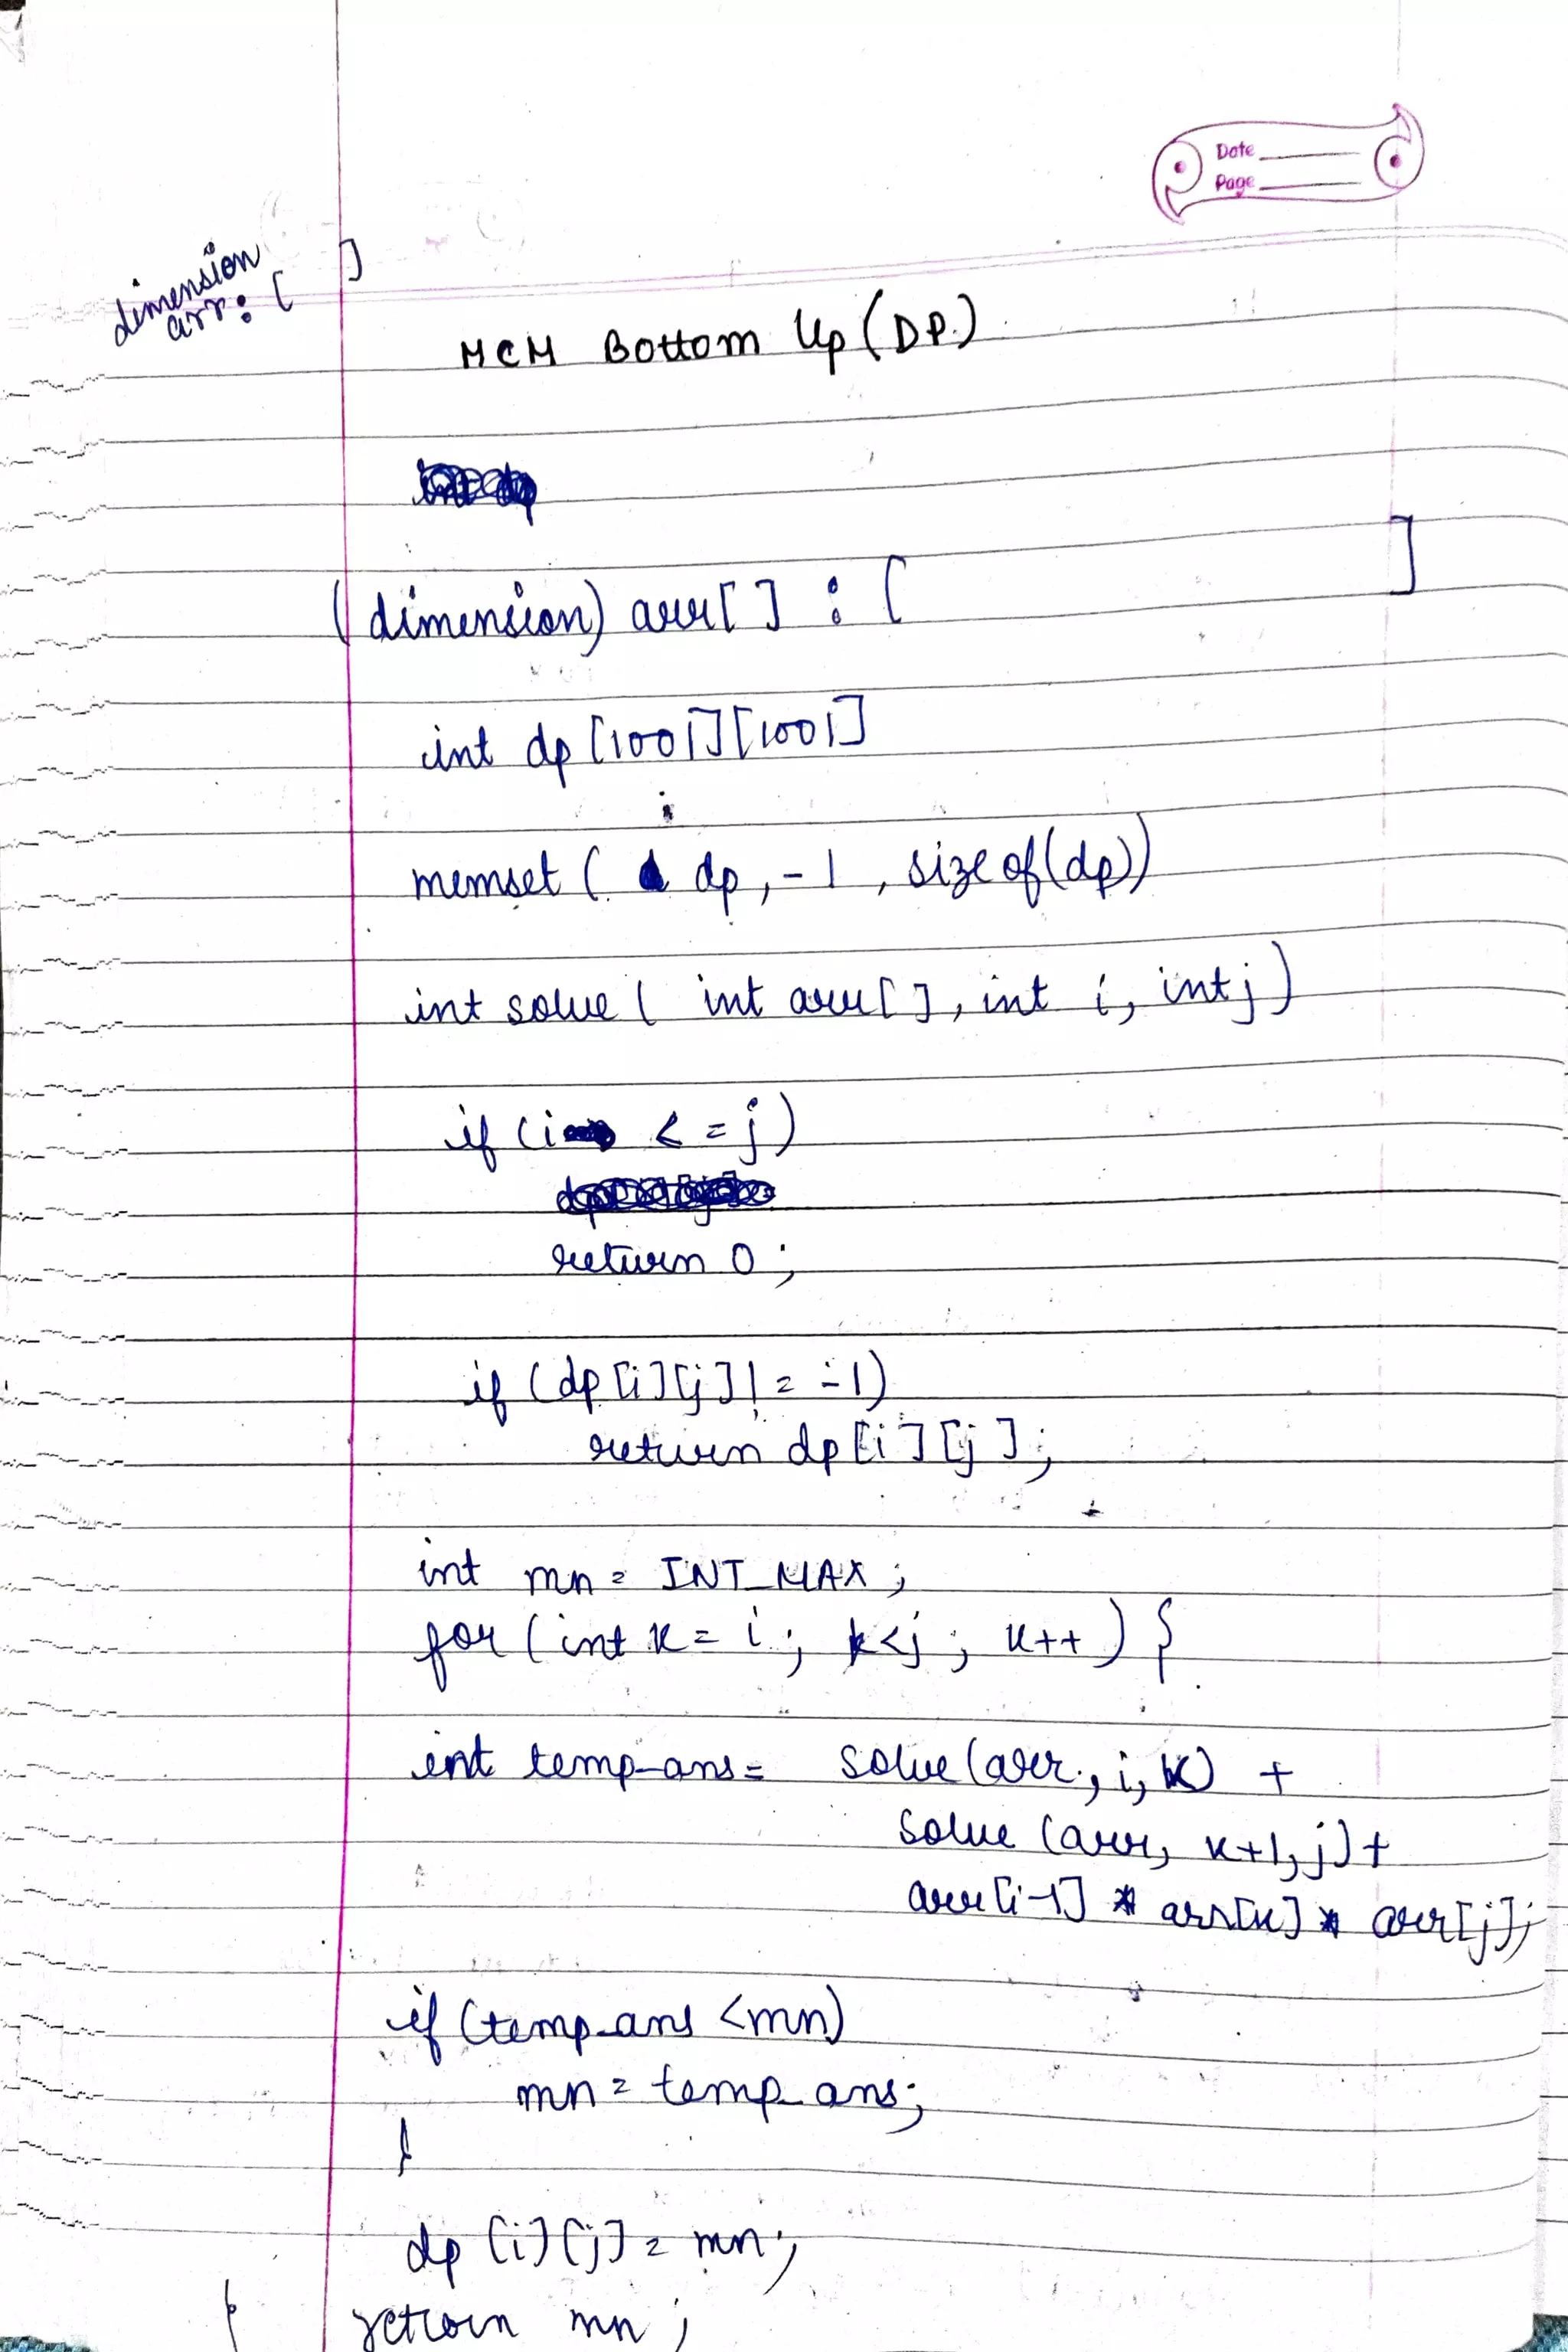 Date
Page
dimension
arr: [ ]
MCM Bottom Up (DP.)
(dimension) arr[ ] : [ ]
int dp [1001][1001]
memset ( dp, -1, sizeof(dp))
int solve ( int arr[ ], int i, int j)
if (i <= j)
return 0;
if (dp[i][j] != -1)
return dp[i][j];
int mn = INT_MAX;
for (int k = i; k<j; k++) {
int temp_ans = solve(arr, i, k) +
solve (arr, k+1, j) +
arr[i-1] * arr[k] * arr[j];
if (temp_ans <mn)
mn = temp_ans;
}
dp [i][j] = mn;
} return mn;